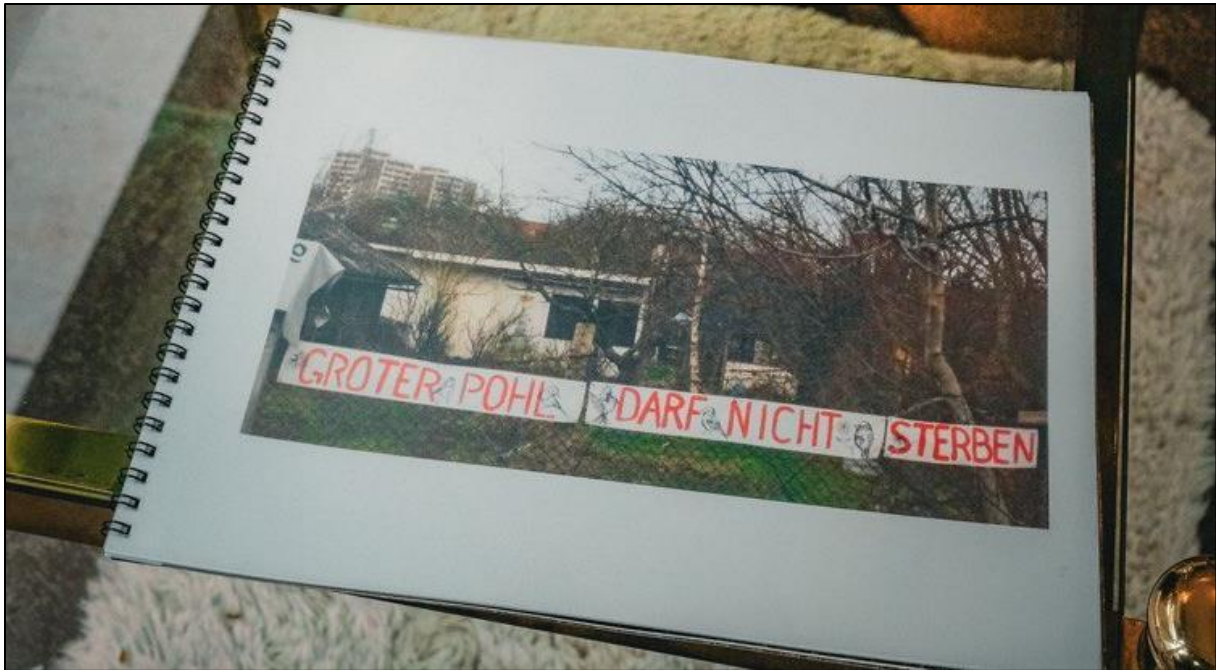 GROTER POHL DARF NICHT STERBEN